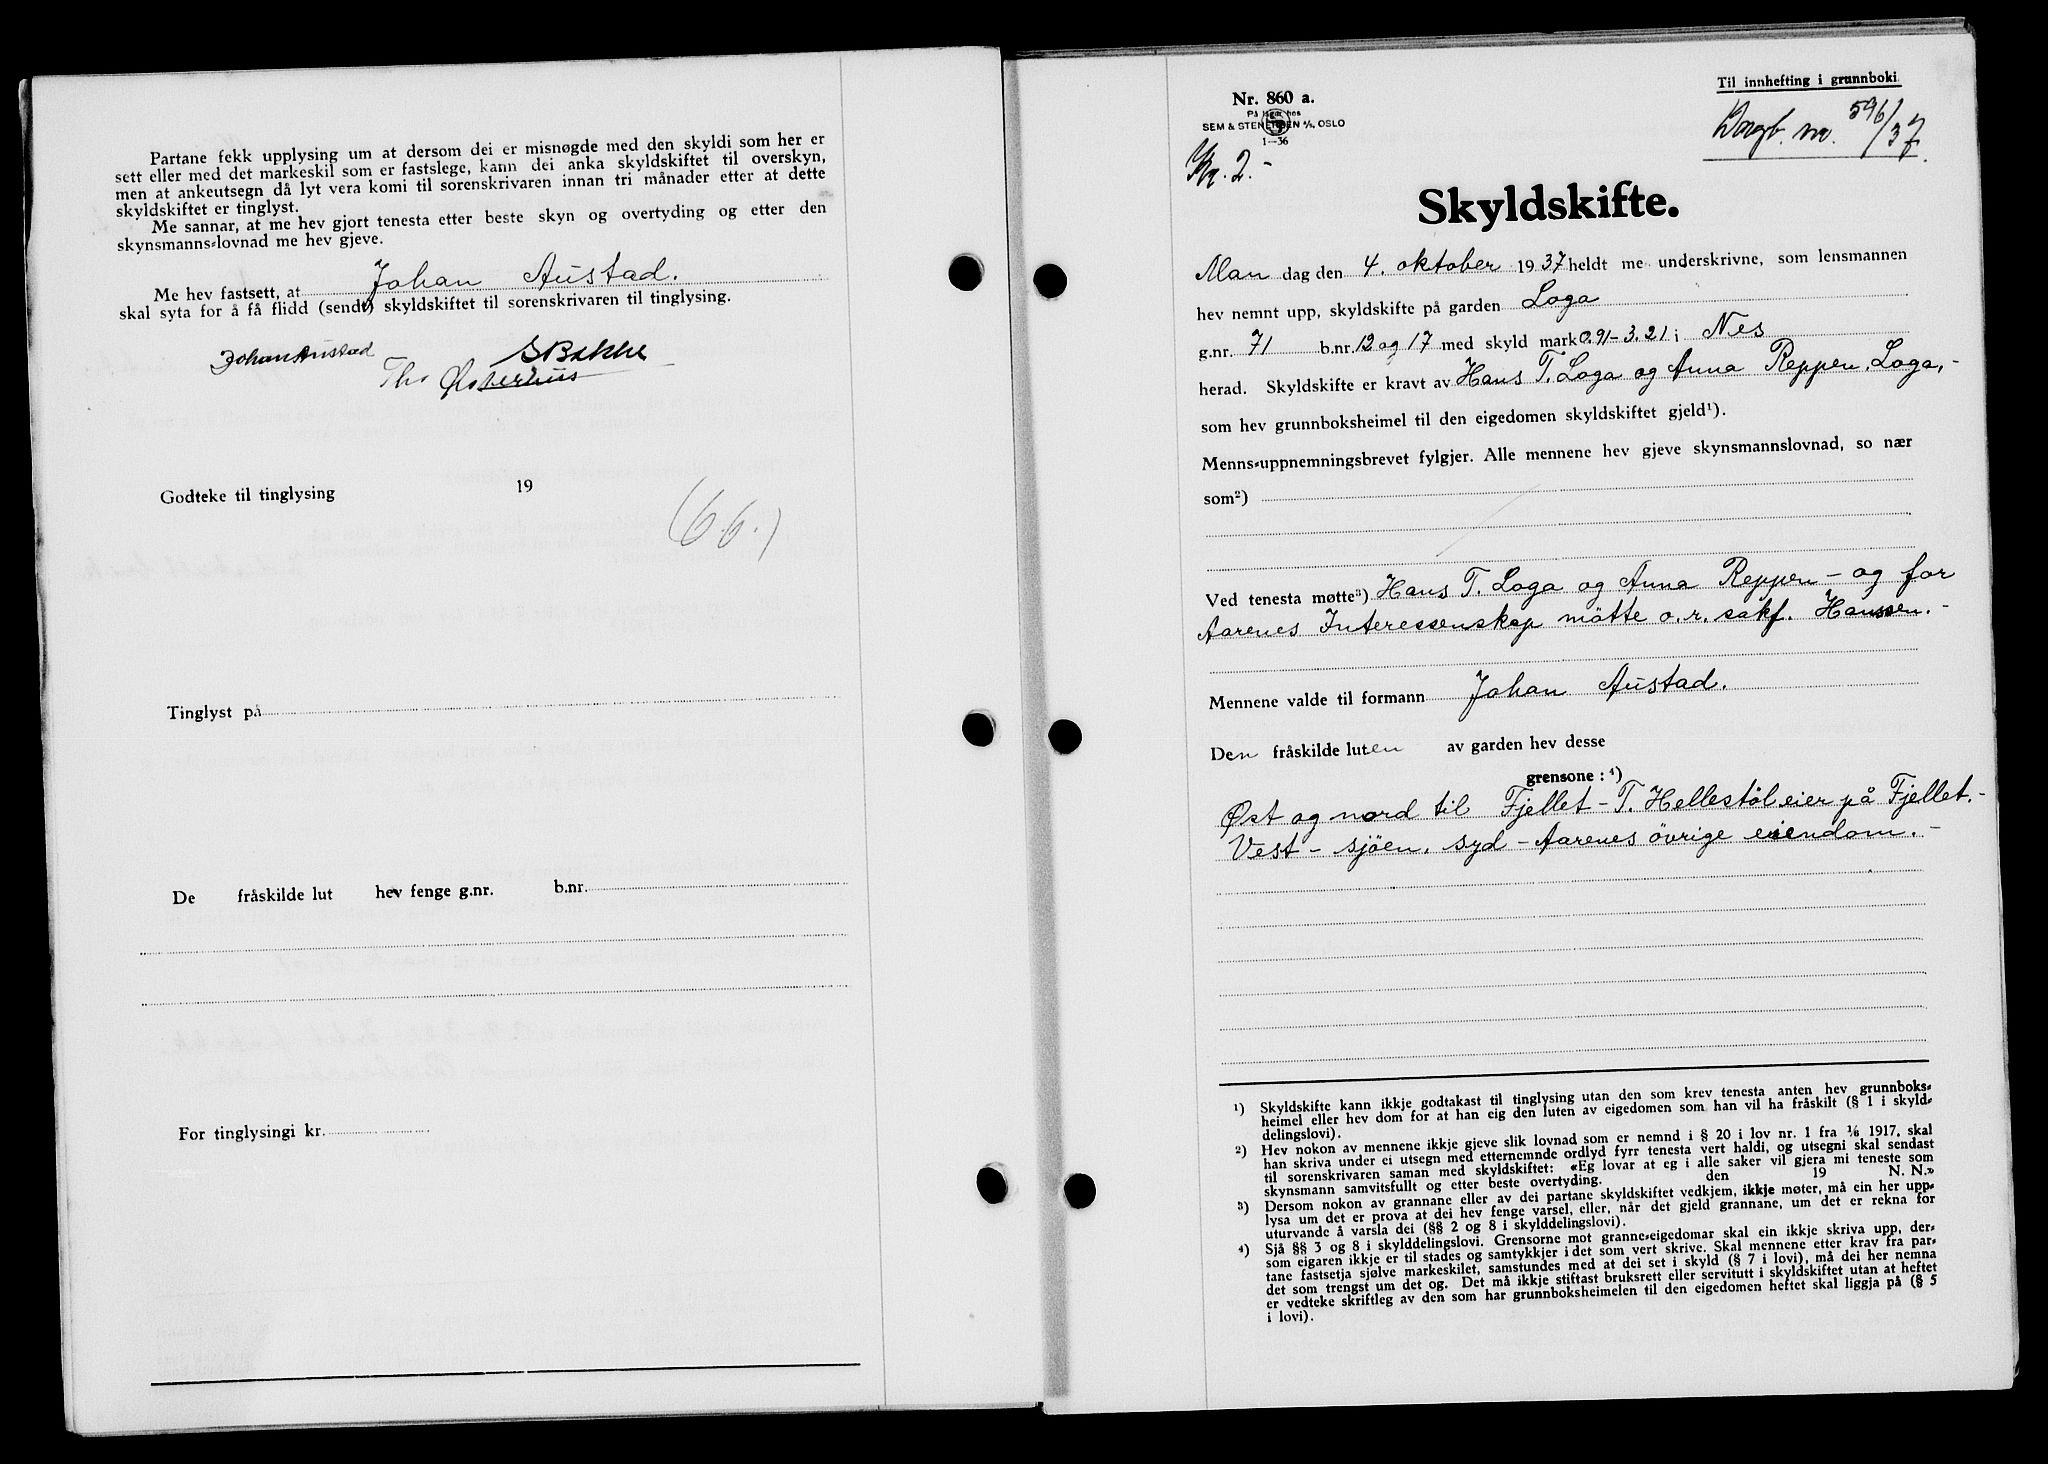 Partane fekk upplysing um at dersom dei er misnøgde med den skyldi som her er
sett eller med det markeskil som er fastslege, kann dei anka skyldskiftet til overskyn,
men at ankeutsegn då lyt vera komi til sorenskrivaren innan tri månader etter at dette
skyldskiftet er tinglyst.
Me sannar, at me hev gjort tenesta etter beste skyn og overtyding og etter den
skynsmanns-lovnad me hev gjeve.
Me hev fastsett, at Johan Austad.
skal syta for å få flidd (sendt) skyldskiftet til sorenskrivaren til tinglysing.
Johan Austad SBakke
Th. Østerhus
Godteke til tinglysing 19
(6.6.)
Tinglyst på
De fråskilde lut hev fenge g.nr. b.nr.
For tinglysingi kr.
Til innhefting i grunnboki
Nr. 860 a.
På lager hos
SEM & STENERSEN A/S, OSLO
1—36
Dagb. nr. 596/37.
Kr. 2.-
Skyldskifte.
Man dag den 4. oktober 1937 heldt me underskrivne, som lensmannen
hev nemnt upp, skyldskifte på garden Loga
g.nr. 71 b.nr. 12 og 17 med skyld mark 0.91-3.21 i Nes
herad. Skyldskifte er kravt av Hans T. Loga og Anna Reppen, Loga,-
som hev grunnboksheimel til den eigedomen skyldskiftet gjeld¹).
Menns-uppnemningsbrevet fylgjer. Alle mennene hev gjeve skynsmannslovnad, so nær
som²)
Ved tenesta møtte³) Hans T. Loga og Anna Reppen - og for
Aarenes Interessenskap mötte o.r. sakf. Hanssen.-
Mennene valde til formann Johan Austad.
Den fråskilde luten av garden hev desse
grensone: ⁴)
Øst og nord til Fjellet - T. Hellestöl eier på Fjellet.-
Vest - sjöen, syd - Aarenes övrige eiendom.-
¹) Skyldskifte kann ikkje godtakast til tinglysing utan den som krev tenesta anten hev grunnboks-
heimel eller hev dom for at han eig den luten av eigedomen som han vil ha fråskilt (§ 1 i skyld-
delingslovi).
²) Hev nokon av mennene ikkje gjeve slik lovnad som er nemnd i § 20 i lov nr. 1 fra 1/6 1917, skal
han skriva under ei utsegn med etternemnde ordlyd fyrr tenesta vert haldi, og utsegni skal sendast
til sorenskrivaren saman med skyldskiftet: «Eg lovar at eg i alle saker vil gjera mi teneste som
skynsmann samvitsfullt og etter beste overtyding. den 19 N. N.»
³) Dersom nokon av grannane eller av dei partane skyldskiftet vedkjem, ikkje møter, må ein her upp-
lysa um det er prova at dei hev fenge varsel, eller, når det gjeld grannane, um det er rekna for
uturvande å varsla dei (§§ 2 og 8 i skylddelingslovi).
⁴) Sjå §§ 3 og 8 i skylddelingslovi. Grensorne mot granne-eigedomar skal ein ikkje skriva upp, der-
som eigaren ikkje er til stades og samtykkjer i det som vert skrive. Skal mennene etter krav fra par-
tane fastsetja sjølve markeskilet, samstundes med at dei set i skyld (§ 7 i lovi), må dei her nemna
det som trengst um det og. Det må ikkje stiftast bruksrett eller servitutt i skyldskiftet utan at heftet
er vedteke skriftleg av den som har grunnboksheimelen til den eigedomen heftet skal liggja på (§ 5
i lovi).